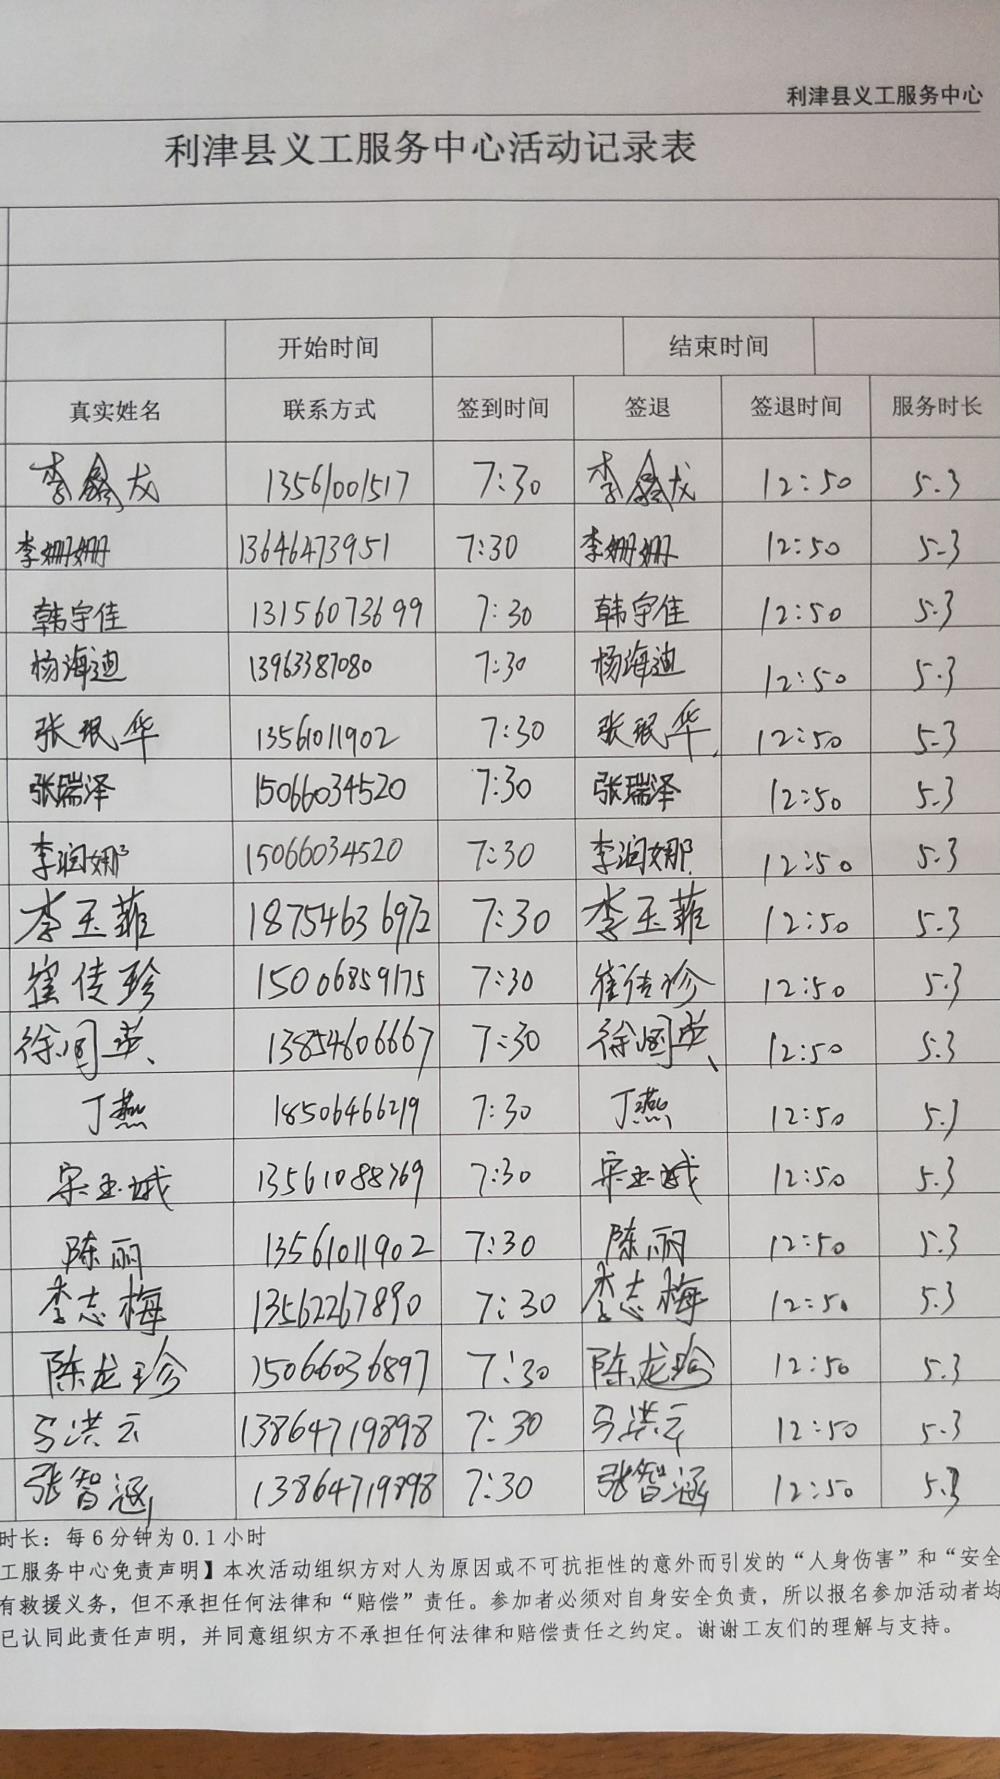 利津县义工服务中心
利津县义工服务中心活动记录表
开始时间 结束时间
真实姓名 联系方式 签到时间 签退 签退时间 服务时长
李鑫龙 13561001517 7:30 李鑫龙 12:50 5.3
李姗姗 13646473951 7:30 李姗姗 12:50 5.3
韩宇佳 13156073699 7:30 韩宇佳 12:50 5.3
杨海迪 13963387080 7:30 杨海迪 12:50 5.3
张珉华 13561011902 7:30 张珉华 12:50 5.3
张瑞泽 15066034520 7:30 张瑞泽 12:50 5.3
李润娜 15066034520 7:30 李润娜 12:50 5.3
李玉菲 18754636972 7:30 李玉菲 12:50 5.3
崔传珍 15006859175 7:30 崔传珍 12:50 5.3
徐国英 13854606667 7:30 徐国英 12:50 5.3
丁燕 18506466219 7:30 丁燕 12:50 5.3
宋玉城 13561088769 7:30 宋玉城 12:50 5.3
陈丽 13561011902 7:30 陈丽 12:50 5.3
李志梅 13562267890 7:30 李志梅 12:50 5.3
陈龙珍 15066036897 7:30 陈龙珍 12:50 5.3
马洪云 13864719898 7:30 马洪云 12:50 5.3
张智涵 13864719898 7:30 张智涵 12:50 5.3
时长：每6分钟为0.1小时
工服务中心免责声明】本次活动组织方对人为原因或不可抗拒性的意外而引发的“人身伤害”和“安全
有救援义务，但不承担任何法律和“赔偿”责任。参加者必须对自身安全负责，所以报名参加活动者均
已认同此责任声明，并同意组织方不承担任何法律和赔偿责任之约定。谢谢工友们的理解与支持。